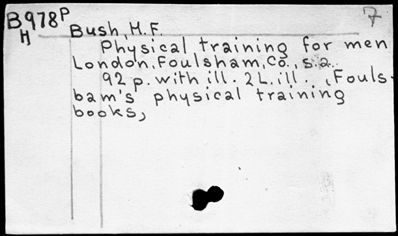 B978P 7
H Bush, H.F.
Physical training for men
London, Foulsham, Co., s.a.
92 p. with ill. 2 L. ill. , Fouls-
bam's physical training
books,